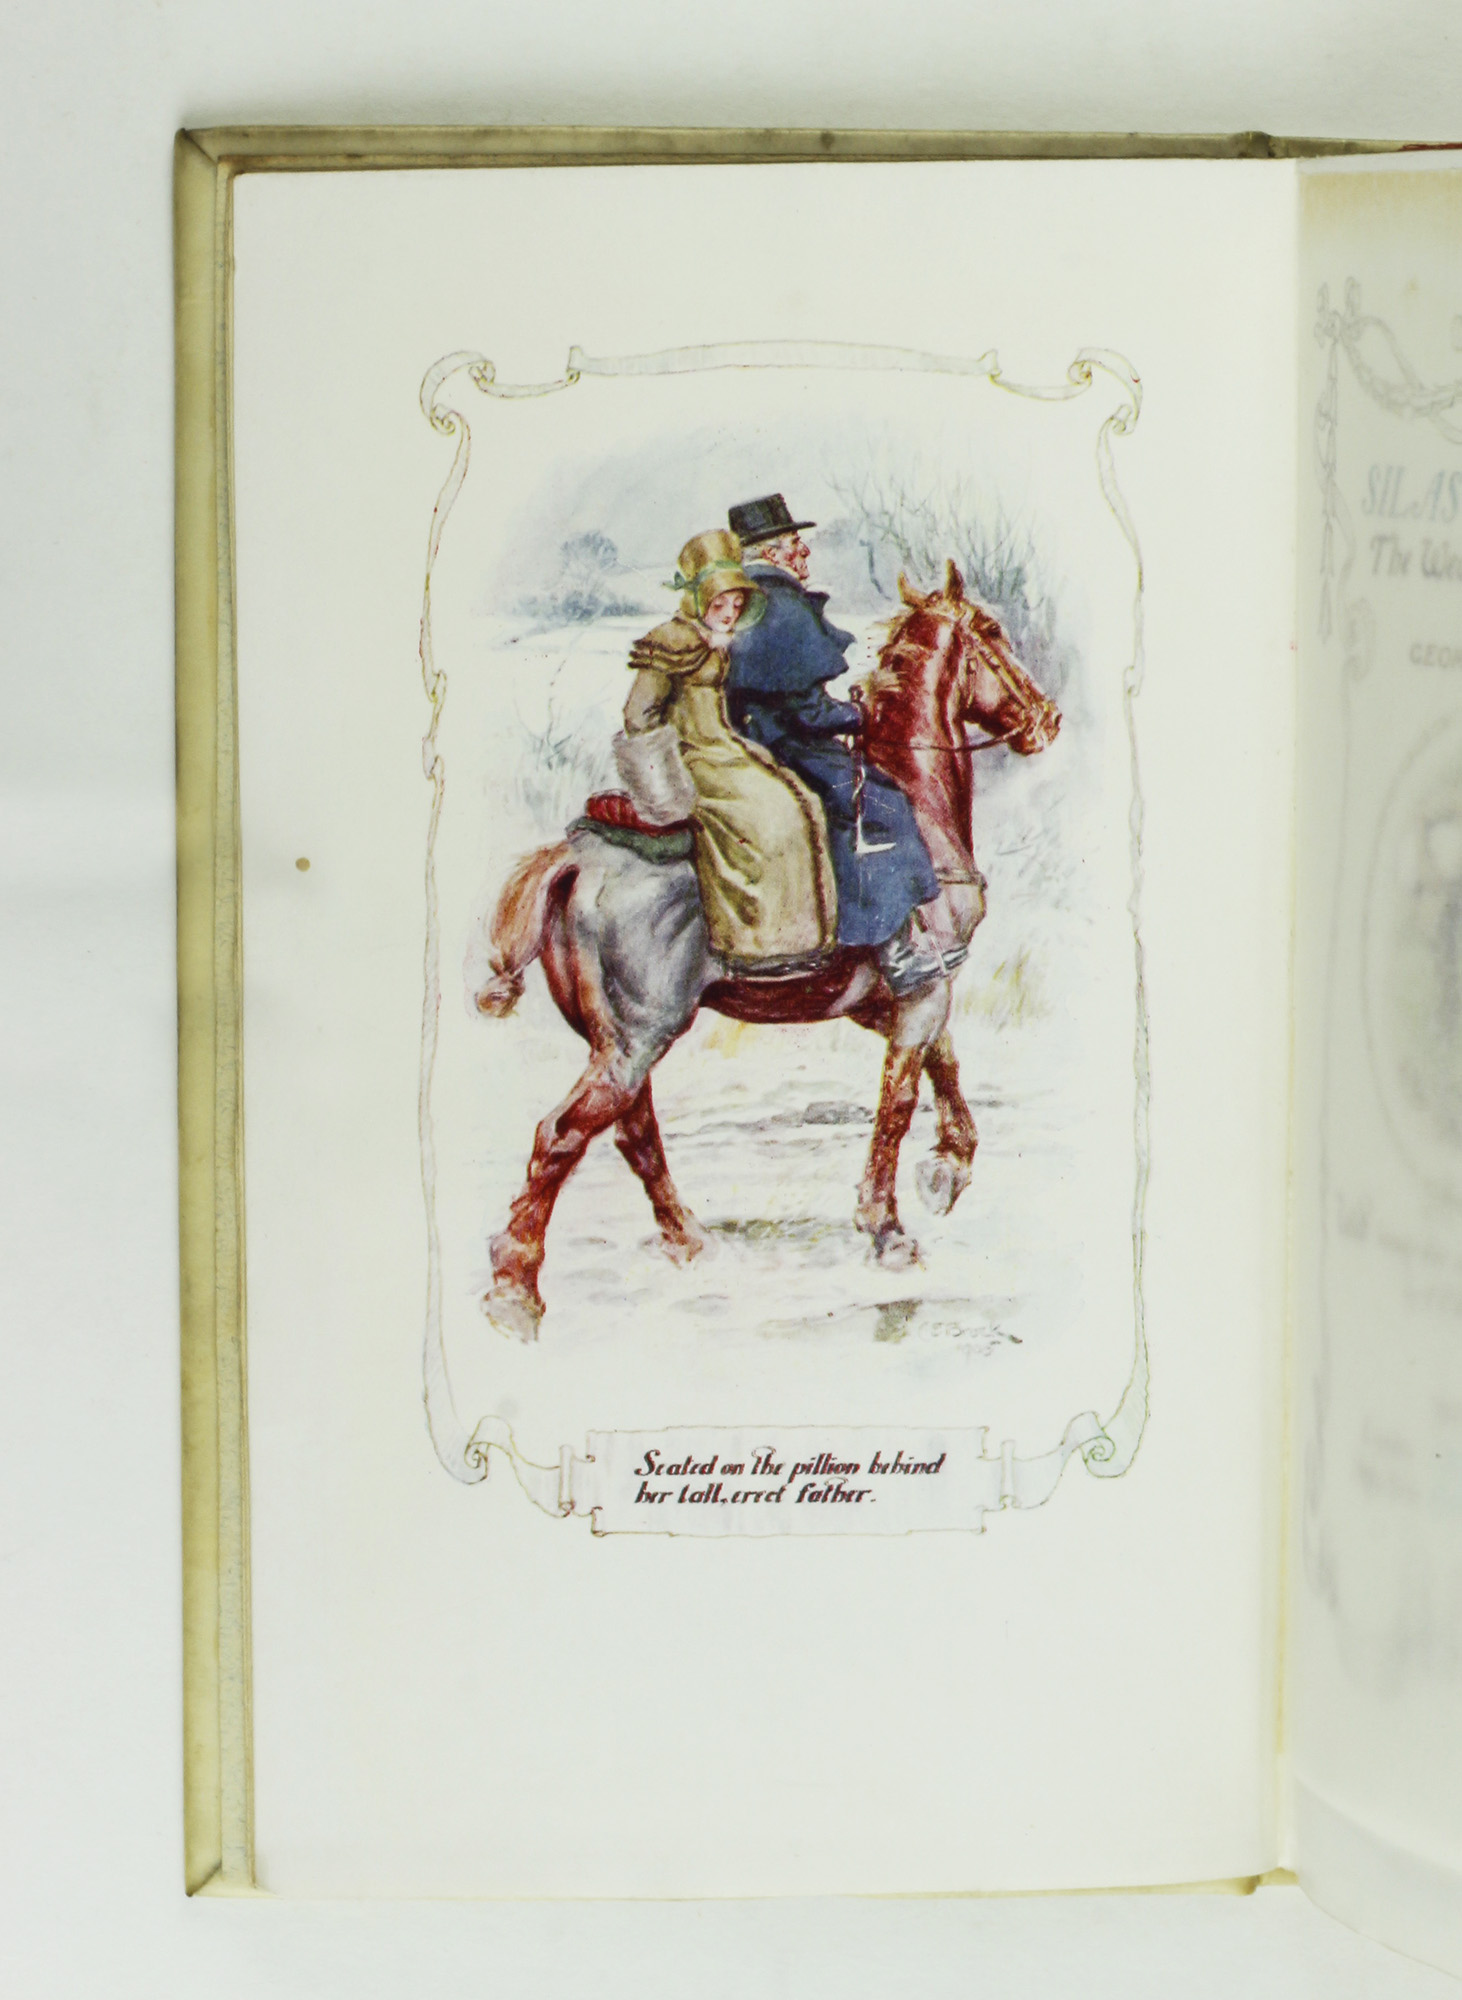 CEBrock
1905
Seated on the pillion behind
her tall, erect father.
SILAS
The We
GEO